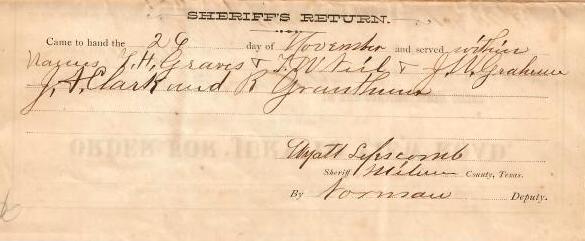 SHERIFF'S RETURN.
Came to hand the 26 day of November and served within
names T. H. Graves & T. W Neil & J. N. Grahame
J. A. Clark and R Grantham
Wyatt Lipscomb
Sheriff Milam County, Texas.
By Norman Deputy.